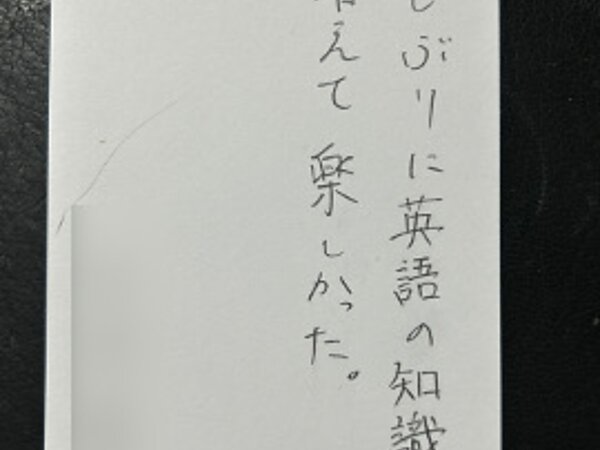 しぶりに英語の知識
増えて楽しかった。